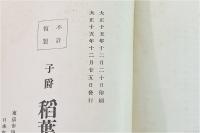 大正十五年十二月二十日印刷
大正十五年十二月廿五日發行
不許
複製
子爵 稻葉
東京市
日本